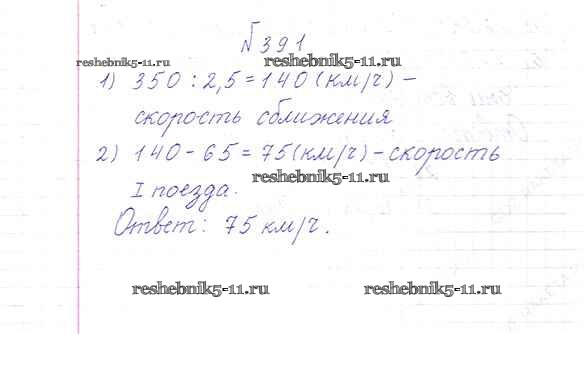 №391
reshebnik5-11.ru reshebnik5-11.ru
1) 350 : 2,5 = 140 (км/ч) –
скорость сближения
2) 140 - 65 = 75 (км/ч) - скорость
reshebnik5-11.ru
I поезда.
Ответ: 75 км/ч.
reshebnik5-11.ru reshebnik5-11.ru